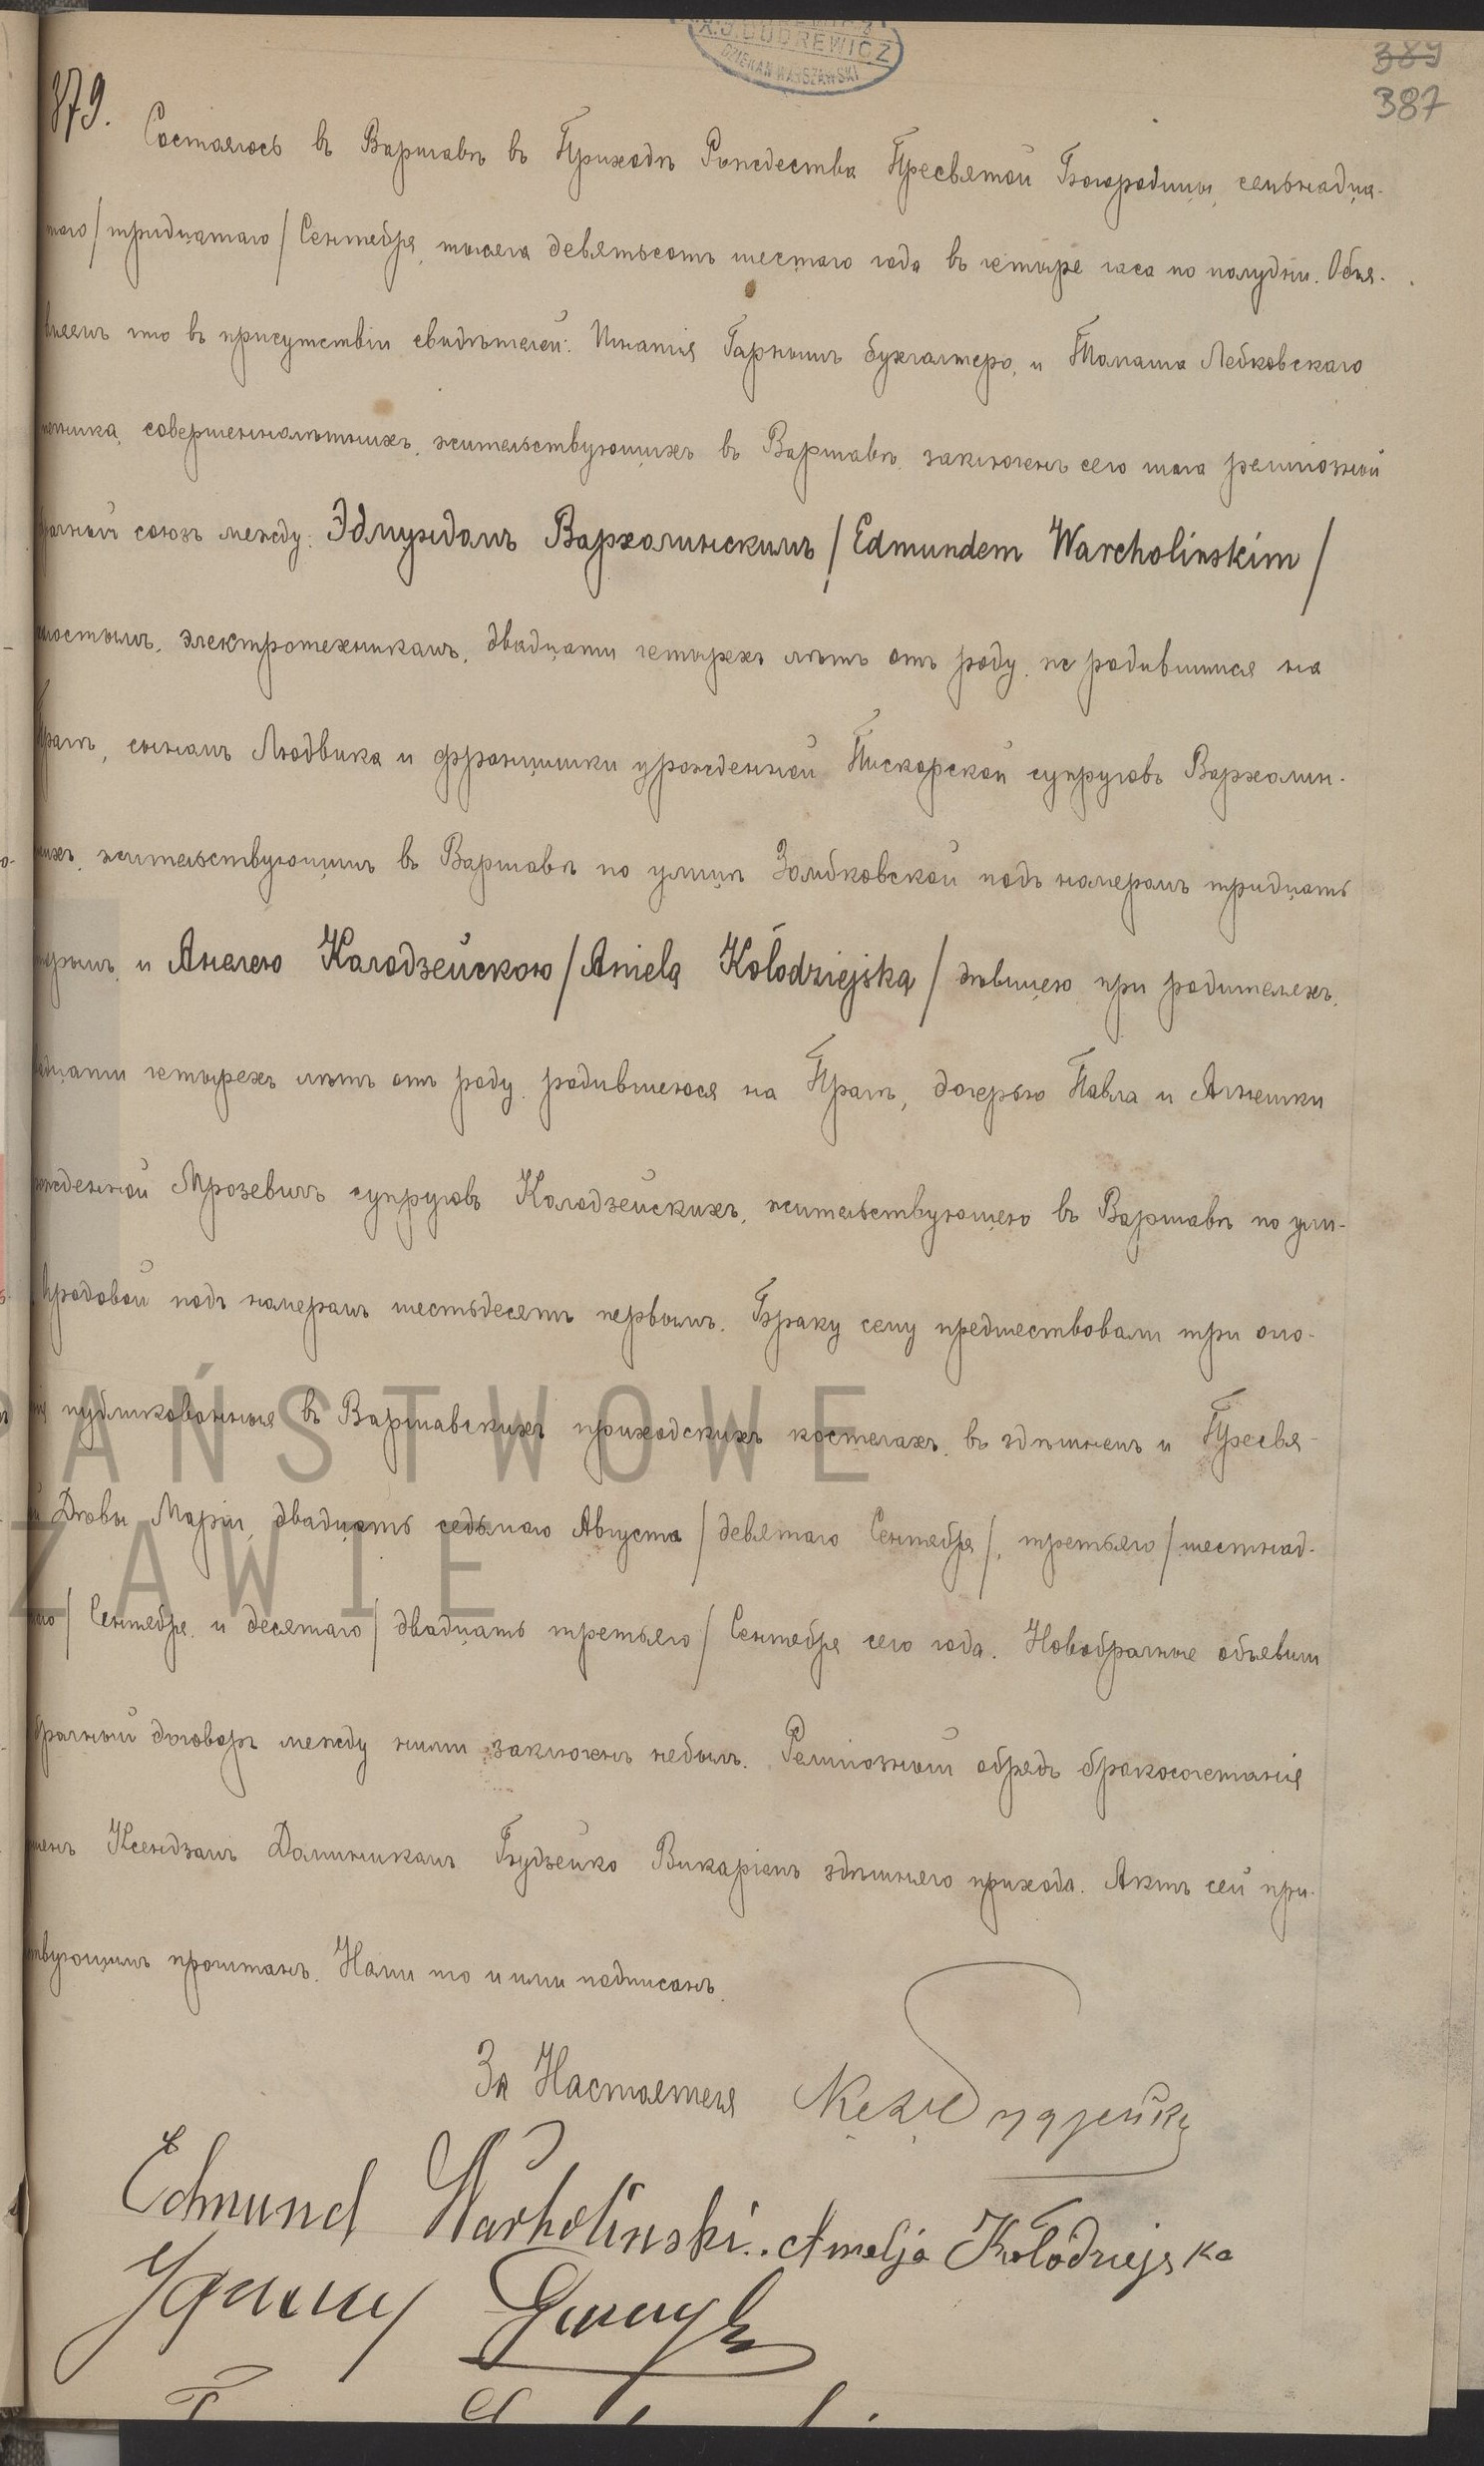 X. J. DUDREWICZ
DZIEKAN WARSZAWSKI
389
387
379.
Состоялось въ Варшавѣ въ Приходѣ Рождества Пресвятой Богородицы, семьнадца-
таго / тридцатаго / Сентября, тысяча девятьсотъ шестаго года въ четыре часа по полудни. Объя-
вляемъ что въ присутствіи свидѣтелей: Игнатія Гарнышъ бухгалтера, и Томаша Лебковскаго
совершеннолѣтнихъ, жительствующихъ въ Варшавѣ, заключенъ сего числа религіозный
брачный союзъ между: Эдмундомъ Вархолинскимъ / Edmundem Warcholinskim /
холостымъ, электротехникомъ, двадцати четырехъ лѣтъ отъ роду, родившимся на
Прагѣ, сыномъ Людвика и Францишки урожденной Пискорской супруговъ Вархолин-
скихъ, жительствующимъ въ Варшавѣ по улицѣ Зомбковской подъ номеромъ тридцать
и Анелею Колодзейскою / Anielą Kołodziejską / дѣвицею при родителяхъ,
двадцати четырехъ лѣтъ отъ роду, родившеюся на Прагѣ, дочерью Павла и Агнешки
рожденной Мрозевичъ супруговъ Колодзейскихъ, жительствующею въ Варшавѣ по ули-
Бродовой подъ номеромъ шестьдесятъ первымъ. Браку сему предшествовали три огла-
нія публикованныя въ Варшавскихъ приходскихъ костелахъ, въ здѣшнемъ и Пресвя-
й Дѣвы Маріи, двадцать седьмаго Августа / девятаго Сентября /, третьяго / шестнад-
таго / Сентября, и десятаго / двадцать третьяго / Сентября сего года. Новобрачные объявили
брачный договоръ между ними заключенъ небылъ. Религіозный обрядъ бракосочетанія
шенъ Ксендзомъ Доминикомъ Будзейко Викаріемъ здѣшняго прихода. Актъ сей при-
ствующимъ прочитанъ, Нами то и ими подписанъ.
За Настоятеля Кс. Д Будзейко
Edmund Warholinski. Amelja Kołodziejska
Ignacy Garnysz
PAŃSTWOWE
ZAWIE